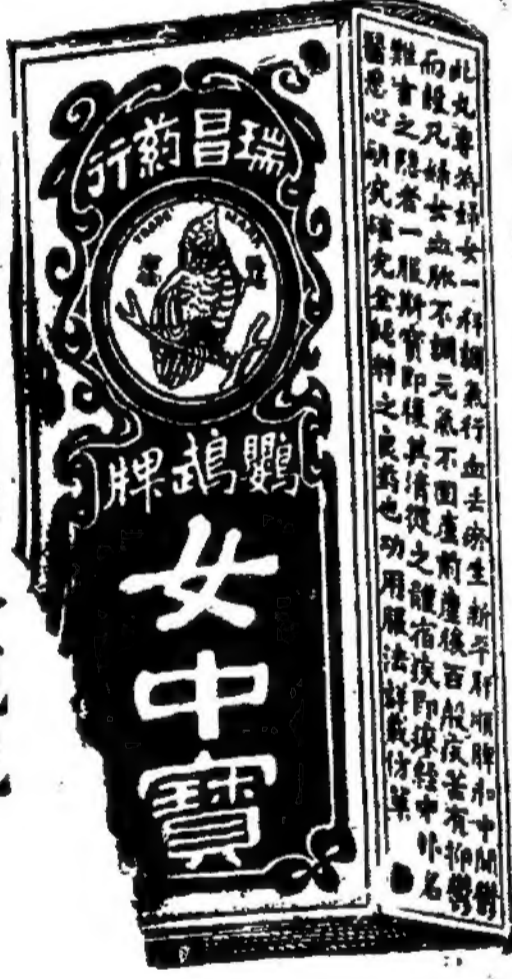 瑞昌葯行
TRADE MARK
鸚鵡牌
女中寶
此丸專為婦女一科調氣行血去瘀生新平肝順脾和中開鬱
而設凡婦女血脉不調元氣不固產前產後百般疾苦有抑鬱
難言之隱者一服斯寶即獲其清從之體宿疾即
醫悉心研究純之良葯也功用服法詳載仿單